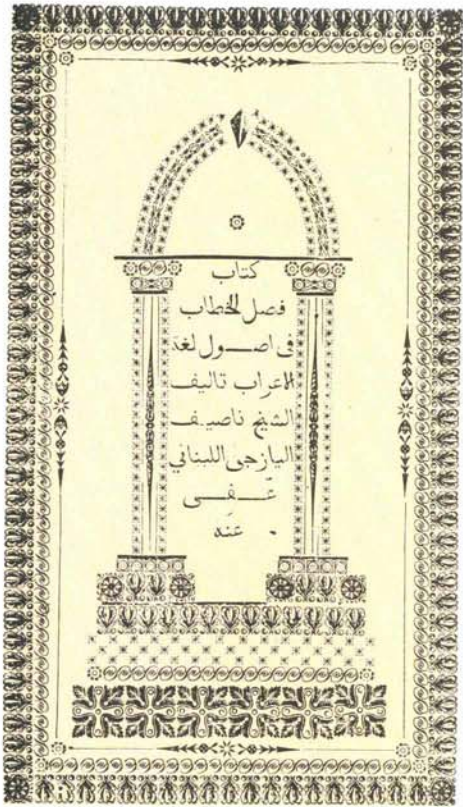 كتاب
فصل الخطاب
فى اصـــول لغة
الاعراب تاليف
الشيخ ناصيـف
اليازجى اللبناني
عُـــفِـــى
عنه